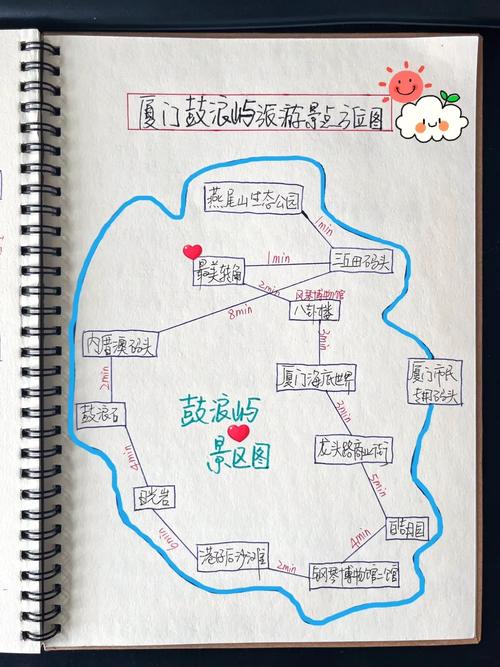 厦门鼓浪屿旅游景点方位图
燕尾山生态公园
1min
三丘田码头
最美转角
1min
2min
风琴博物馆
八卦楼
8min
内厝澳码头
2min
2min
厦门海底世界
厦门市民
专用码头
鼓浪石
鼓浪屿
景区图
3min
龙头路商业街
4min
5min
日光岩
皓月园
6min
4min
港仔后沙滩
2min
钢琴博物馆二馆